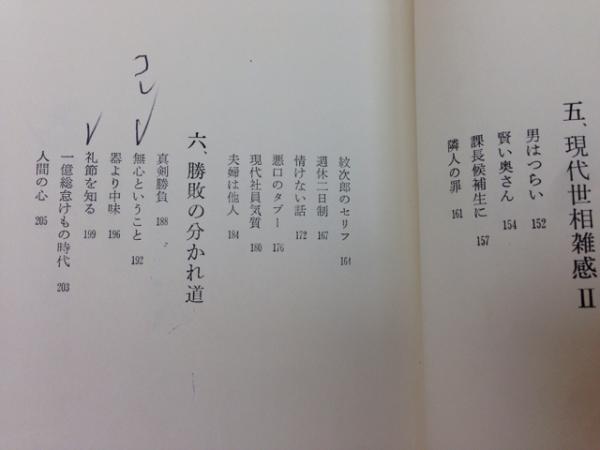 五、現代世相雑感Ⅱ
男はつらい 152
賢い奥さん 154
課長候補生に 157
隣人の罪 161
紋次郎のセリフ 164
週休二日制 167
情けない話 172
悪口のタブー 176
現代社員気質 180
夫婦は他人 184
六、勝敗の分かれ道
真剣勝負 188
コレ
無心ということ 192
器より中味 196
礼節を知る 199
一億総怠けもの時代 203
人間の心 205